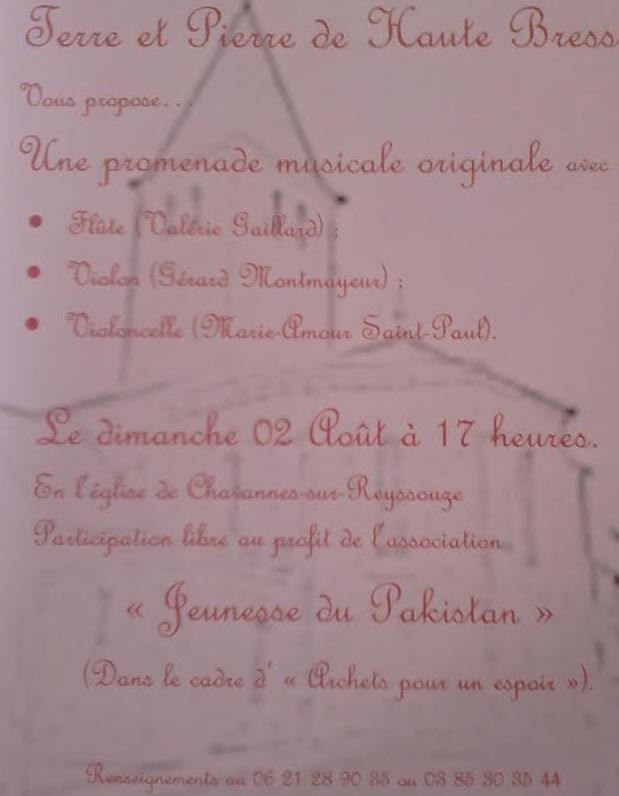 Terre et Pierre de Haute Bress
Vous propose...
Une promenade musicale originale avec
• Flûte (Valérie Gaillard) ;
• Violon (Gérard Montmayeur) ;
• Violoncelle (Marie-Amour Saint-Paul).
Le dimanche 02 Août à 17 heures.
En l'église de Chavannes-sur-Reyssouze
Participation libre au profit de l'association
« Jeunesse du Pakistan »
(Dans le cadre d' « Archets pour un espoir »).
Renseignements au 06 21 28 90 35 ou 03 85 30 35 44